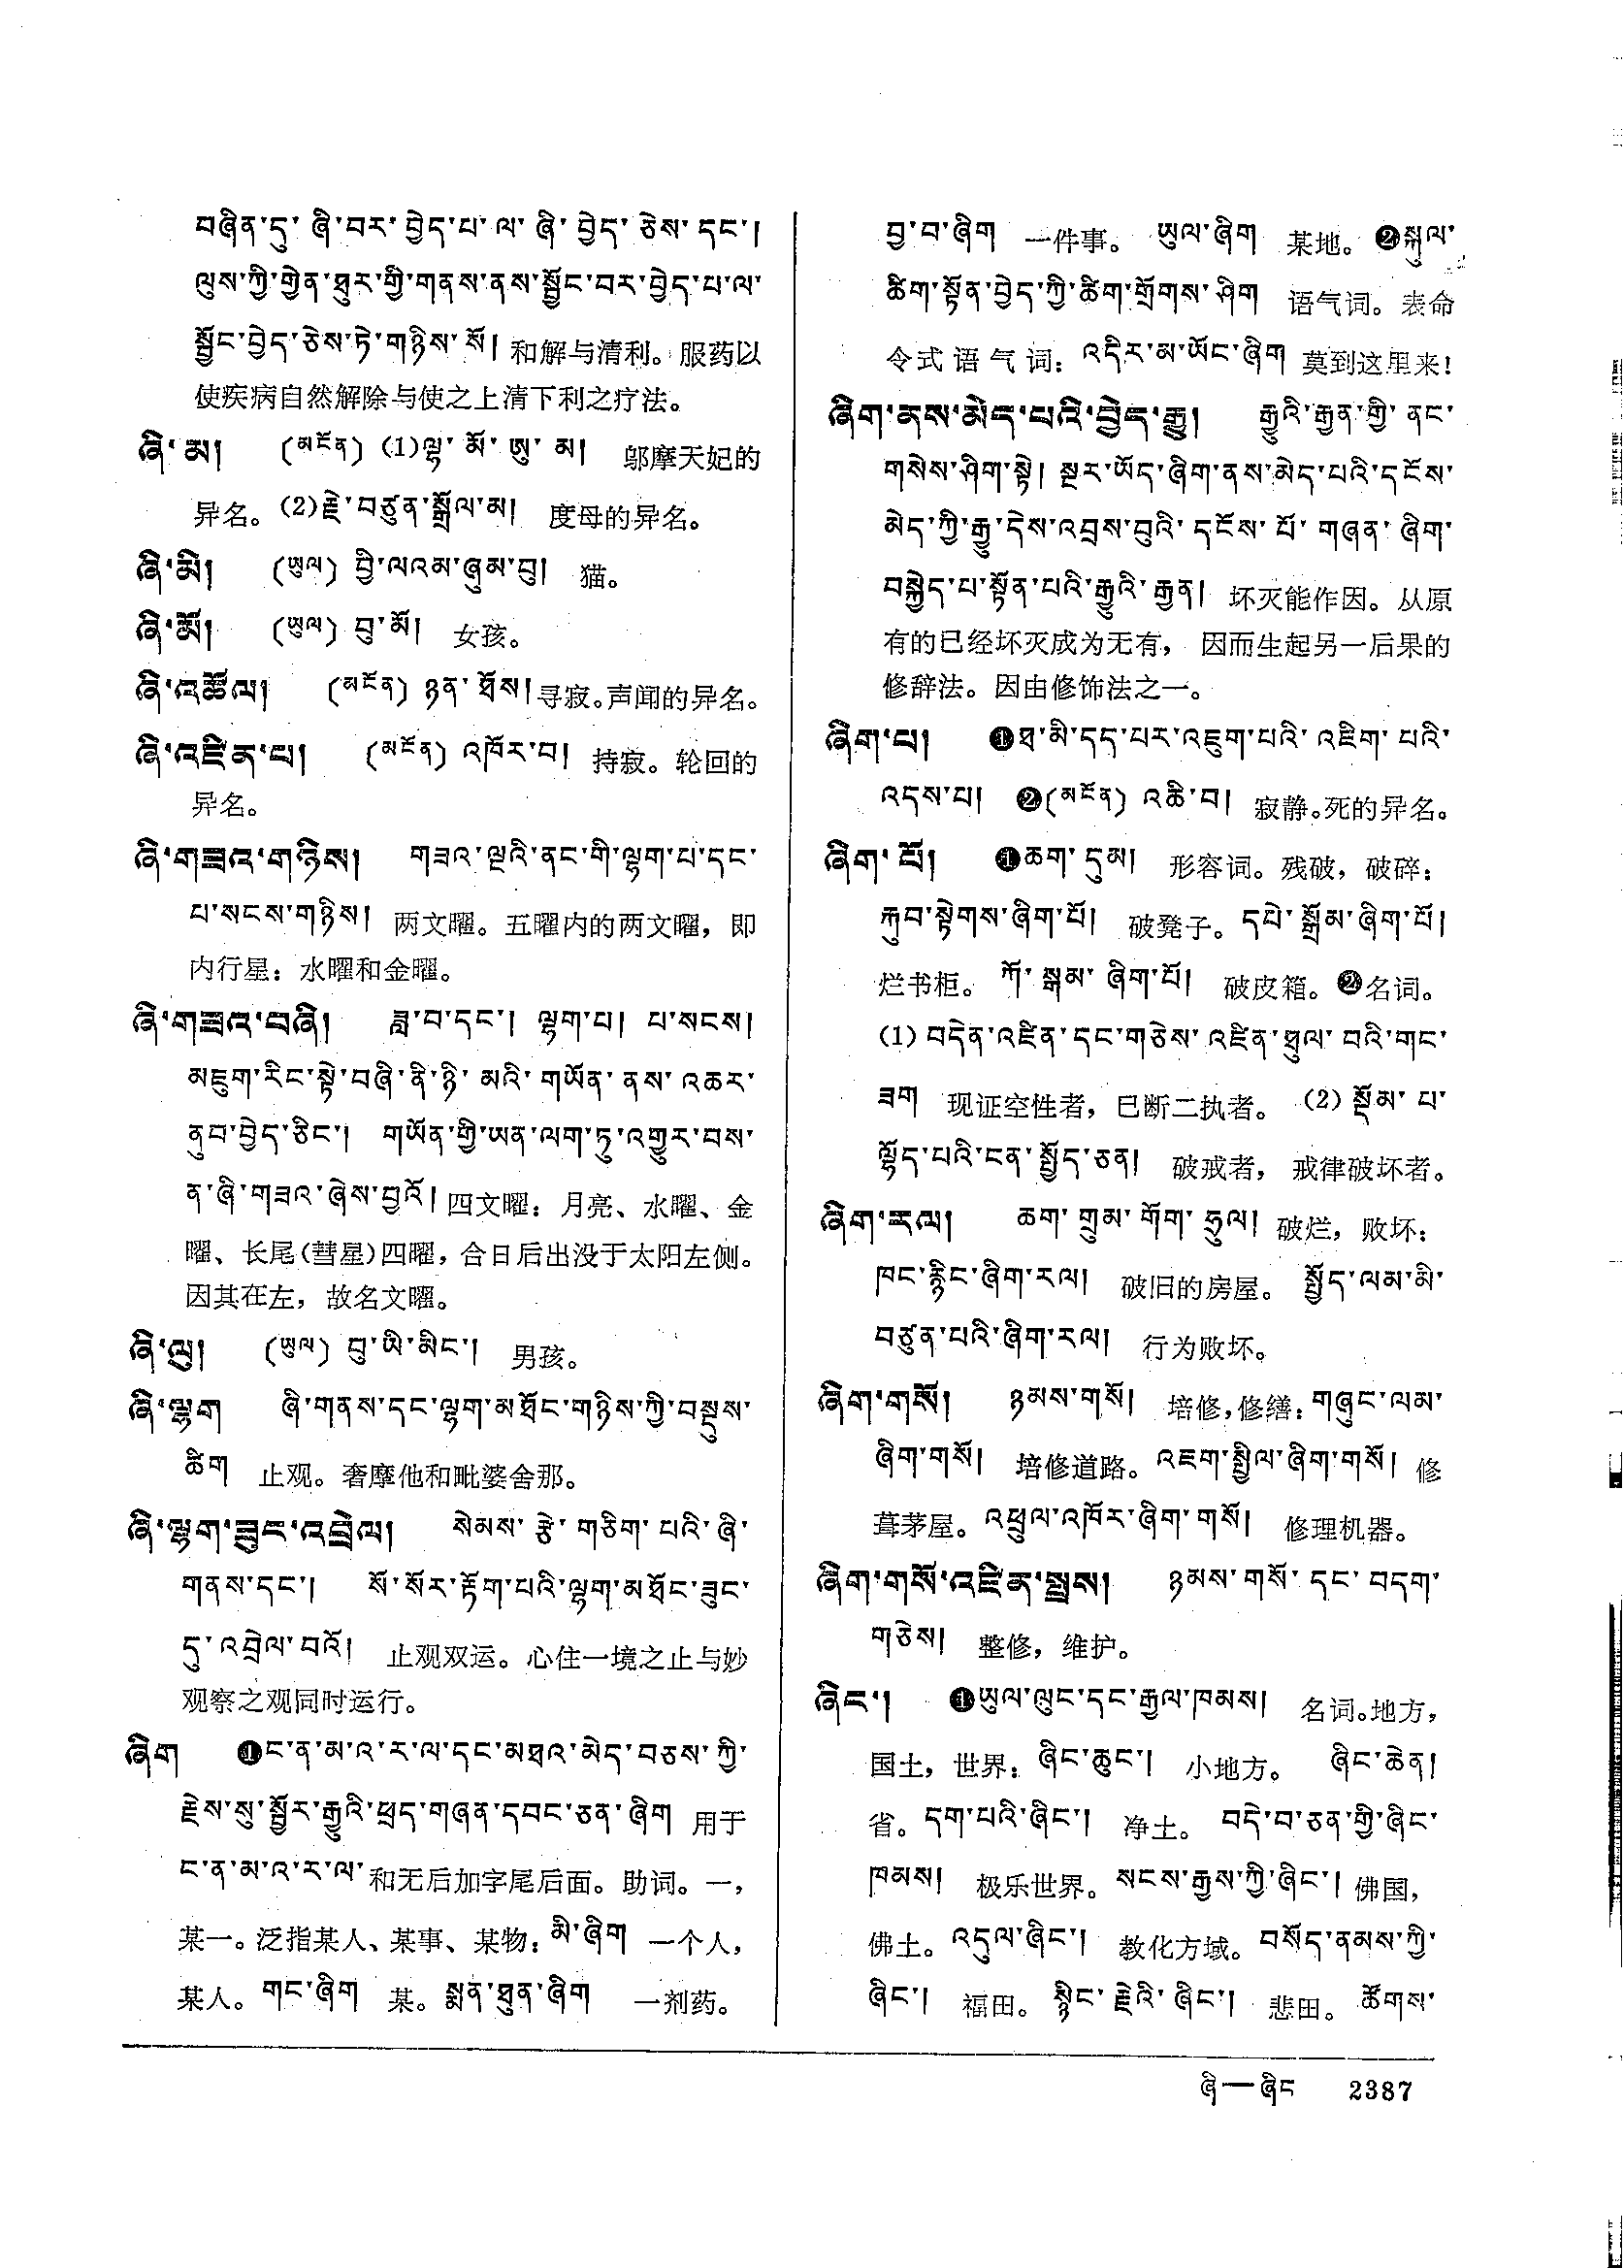 བཞིན་དུ་ ཞི་བར་ བྱེད་པ་ ལ་ ཞི་ བྱེད་ ཅེས་ དང་།
ལུས་ཀྱི་གྱེན་ཐུར་གྱི་གནས་ནས་སྦྱོང་བར་བྱེད་པ་ལ་
སྦྱོང་བྱེད་ཅེས་ཏེ་གཉིས་སོ། 和解与清利。服药以
使疾病自然解除与使之上清下利之疗法。
ཞི་མ། (མངོན) (1)ལྷ་ མོ་ ཨུ་ མ། 邬摩天妃的
异名。(2)རྗེ་བཙུན་སྒྲོལ་མ། 度母的异名。
ཞི་མི། (ཡུལ) བྱི་ལའམ་ཞུམ་བུ། 猫。
ཞི་མོ། (ཡུལ) བུ་མོ། 女孩。
ཞི་འཚོལ། (མངོན) ཉན་ ཐོས། 寻寂。声闻的异名。
ཞི་འཛིན་པ། (མངོན) འཁོར་བ། 持寂。轮回的
异名。
ཞི་གཟའ་གཉིས། གཟའ་ལྔའི་ནང་གི་ལྷག་པ་དང་
པ་སངས་གཉིས། 两文曜。五曜内的两文曜，即
内行星：水曜和金曜。
ཞི་གཟའ་བཞི། ཟླ་བ་དང་། ལྷག་པ། པ་སངས།
མཇུག་རིང་སྟེ་བཞི་ནི་ཉི་ མའི་ གཡོན་ ནས་ འཆར་
ནུབ་བྱེད་ཅིང་། གཡོན་གྱི་ཡན་ལག་ཏུ་འགྱུར་བས་
ན་ཞི་གཟའ་ཞེས་བྱའོ། 四文曜：月亮、水曜、金
曜、长尾(彗星)四曜，合日后出没于太阳左侧。
因其在左，故名文曜。
ཞི་ལུ། (ཡུལ) བུ་ཡི་མིང་། 男孩。
ཞི་ལྷག ཞི་གནས་དང་ལྷག་མཐོང་གཉིས་ཀྱི་བསྡུས་
ཚིག 止观。奢摩他和毗婆舍那。
ཞི་ལྷག་ཟུང་འབྲེལ། སེམས་ རྩེ་ གཅིག་ པའི་ ཞི་
གནས་དང་། སོ་སོར་རྟོག་པའི་ལྷག་མཐོང་ཟུང་
དུ་འབྲེལ་བའོ། 止观双运。心住一境之止与妙
观察之观同时运行。
ཞིག ❶ང་ན་མ་འ་ར་ལ་དང་མཐའ་མེད་བཅས་ཀྱི་
རྗེས་སུ་སྦྱོར་རྒྱུའི་ཕྲད་གཞན་དབང་ཅན་ཞིག 用于
ང་ན་མ་འ་ར་ལ་和无后加字尾后面。助词。一，
某一。泛指某人、某事、某物：མི་ཞིག 一个人，
某人。གང་ཞིག 某。སྨན་ཐུན་ཞིག 一剂药。
བྱ་བ་ཞིག 一件事。 ཡུལ་ཞིག 某地。❷སྐུལ་
ཚིག་སྟོན་བྱེད་ཀྱི་ཚིག་གྲོགས་ཤིག 语气词。表命
令式语气词：འདིར་མ་ཡོང་ཞིག 莫到这里来！
ཞིག་ནས་མེད་པའི་བྱེད་རྒྱུ། རྒྱུའི་རྒྱན་གྱི་ ནང་
གསེས་ཤིག་སྟེ། སྔར་ཡོད་ཞིག་ནས་མེད་པའི་དངོས་
མེད་ཀྱི་རྒྱུ་དེས་འབྲས་བུའི་ དངོས་ པོ་ གཞན་ ཞིག་
བསྐྱེད་པ་སྟོན་པའི་རྒྱུའི་རྒྱན། 坏灭能作因。从原
有的已经坏灭成为无有，因而生起另一后果的
修辞法。因由修饰法之一。
ཞིག་པ། ❶ཐ་མི་དད་པར་འཇུག་པའི་ འཇིག་ པའི་
འདས་པ། ❷(མངོན) འཆི་བ། 寂静。死的异名。
ཞིག་པོ། ❶ཆག་ དུམ། 形容词。残破，破碎：
རྐུབ་སྟེགས་ཞིག་པོ། 破凳子。དཔེ་ སྒྲོམ་ཞིག་པོ།
烂书柜。 ཀོ་ སྒམ་ ཞིག་པོ། 破皮箱。❷名词。
(1) བདེན་འཛིན་དང་གཅེས་འཛིན་ཐུལ་ བའི་གང་
ཟག 现证空性者，已断二执者。(2) སྡོམ་ པ་
ལྷོད་པའི་ངན་སྤྱོད་ཅན། 破戒者，戒律破坏者。
ཞིག་རལ། ཆག་ གྲུམ་ གོག་ ཧྲུལ། 破烂，败坏：
ཁང་རྙིང་ཞིག་རལ། 破旧的房屋。 སྤྱོད་ལམ་མི་
བཙུན་པའི་ཞིག་རལ། 行为败坏。
ཞིག་གསོ། ཉམས་གསོ། 培修，修缮：གཞུང་ལམ་
ཞིག་གསོ། 培修道路。འཇག་སྤྱིལ་ཞིག་གསོ། 修
葺茅屋。འཕྲུལ་འཁོར་ཞིག་གསོ། 修理机器。
ཞིག་གསོ་འཛིན་སྤྲས། ཉམས་གསོ་ དང་ བདག་
གཅེས། 整修，维护。
ཞིང་། ❶ཡུལ་ལུང་དང་རྒྱལ་ཁམས། 名词。地方，
国土，世界：ཞིང་ཆུང་། 小地方。 ཞིང་ཆེན།
省。དག་པའི་ཞིང་། 净土。 བདེ་བ་ཅན་གྱི་ཞིང་
ཁམས། 极乐世界。སངས་རྒྱས་ཀྱི་ཞིང་། 佛国，
佛土。འདུལ་ཞིང་། 教化方域。བསོད་ནམས་ཀྱི་
ཞིང་། 福田。སྙིང་ རྗེའི་ ཞིང་། 悲田。 ཚོགས་
ཞི—ཞིང 2387